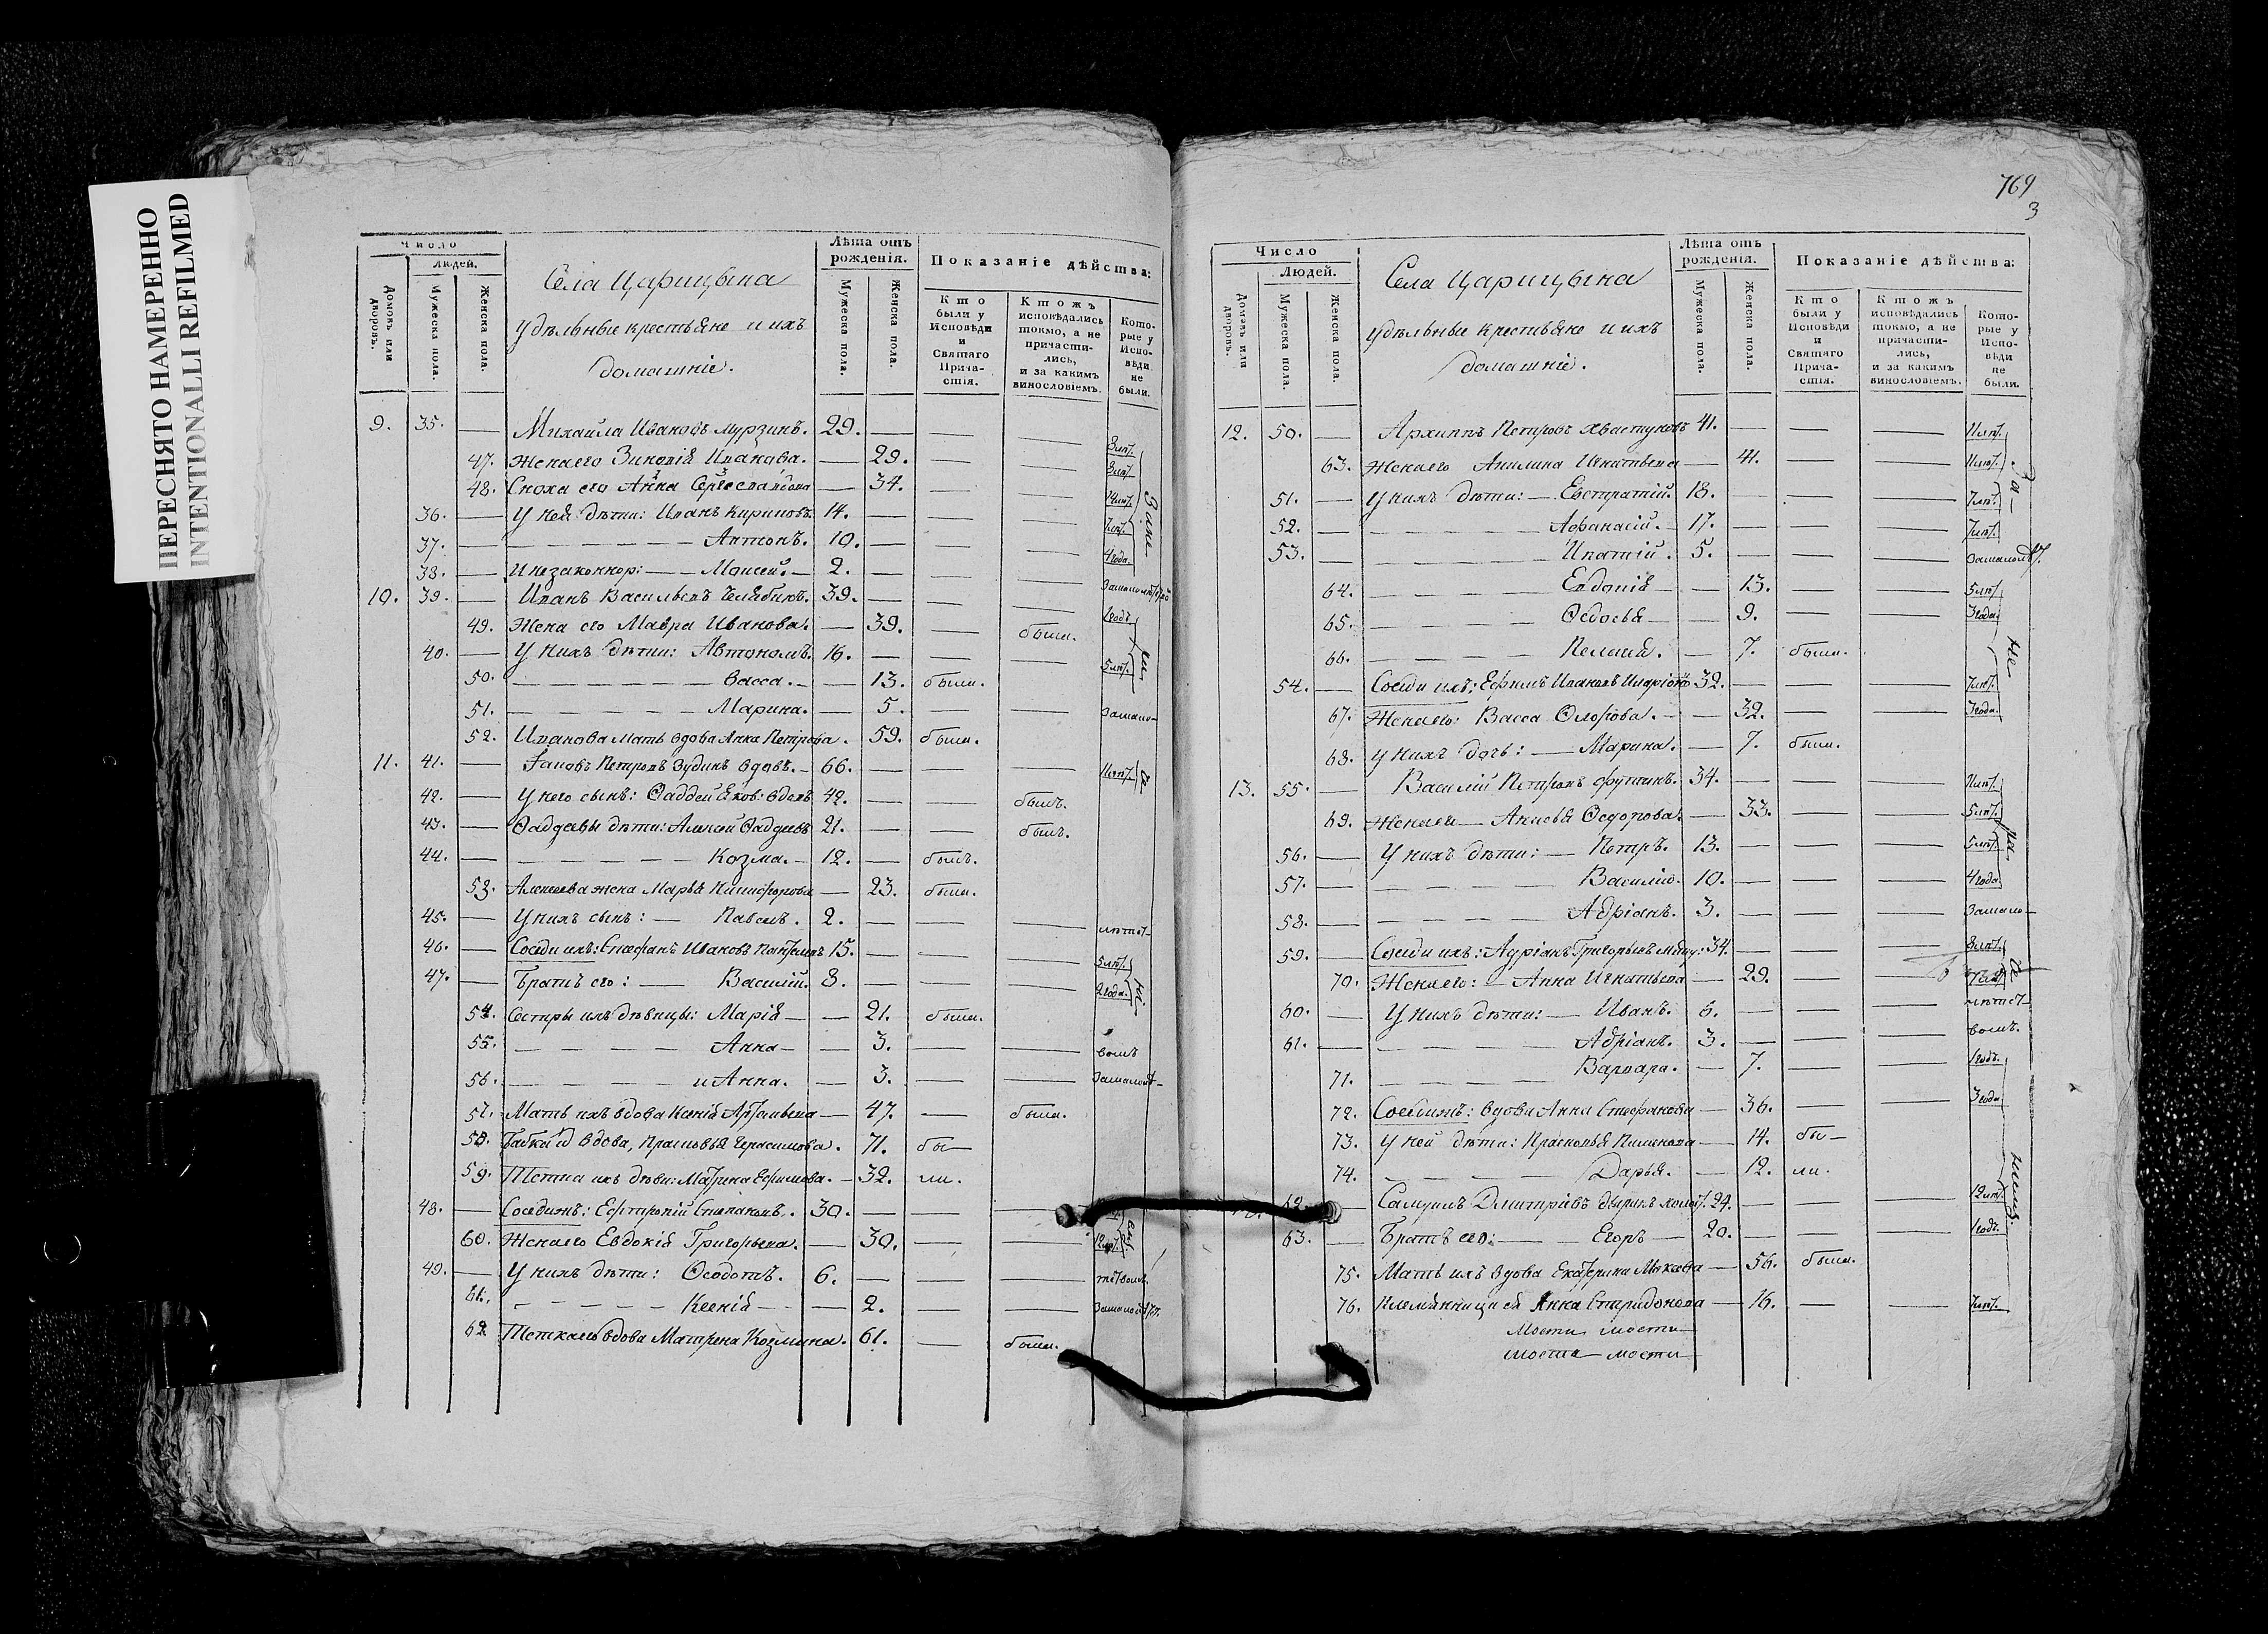 ПЕРЕСНЯТО НАМЕРЕННО
INTENTIONALLI REFILMED
Число
людей.
Домовъ или дворовъ.
Мужеска пола.
Женска пола.
Села Царицына
удѣльные крестьяне и ихъ
домашніе.
Лѣта отъ рожденія.
Мужеска пола.
Женска пола.
Показаніе дѣйства:
Кто были у Исповѣди и Святаго Причастія.
Ктожъ исповѣдались токмо, а не причастились, и за какимъ винословіемъ.
Которые у Исповѣди не были.
9. 35. — Михайла Ивановъ Мурзинъ. 29. — — —
47. Жена его Зиновія Иванова. — 29. — — 8 лѣт.
48. Сноха его Анна — 34. — — 8 лѣт.
36. — У ней дѣти: Иванъ Кириловъ. 14. — — —
37. — — — — Антонъ. 10. — — — 7 лѣт.
38. — И незаконнор: — Моисей. — 2. — — — 4 года.
10. 39. — Иванъ Васильевъ 39. — — —
49. Жена его Мавра Иванова. — 39. — были. 1 годъ
40. — У нихъ дѣти: Автономъ. 16. — — — 5 лѣт.
50. — — — Васса. — — 13. были.
51. — — — Марина. — 5. — — замало—
52. Иванова мать вдова Анна Петрова. 59. были.
11. 41. — Іаковъ Петровъ Зудинъ вдовъ. — 66. — — — 11 лѣт.
42. — У него сынъ: Фаддей Яков: вдовъ 42. — — былъ.
43. — Фаддеевы дѣти: Алексей Фаддеевъ 21. — — былъ.
44. — — — — Козма. — 12. — былъ.
53. Алексеева жена Марья Никифорова — 23. были.
45. — У нихъ сынъ: — Павелъ. 2. — — — лѣтст—
46. — Соседи ихъ: Стефанъ Ивановъ 15. — — — 5 лѣт.
47. — Братъ его: — Василій. 8. — — — 2 года.
54. Сестры ихъ дѣвицы: Марія — — 21. были.
55. — — — Анна — — 3. — — вомъ
56. — — — и Анна. — 3. — — замалолѣт—
57. Мать ихъ вдова Ксенія — 47. — были.
58. вдова, Прасковья Герасимова. 71. бы—
59. Тетка ихъ дѣви: Матрена Ефимова. — 32. ли.
48. — Соседи ихъ: Степановъ. 30. — — —
60. Жена его Евдокія Григорьева. — 30. — — 12 лѣт.
49. — У нихъ дѣти: Ѳеодотъ. 6. — — —
61. — — — Ксенія — — 2. — —
62. Тетка его вдова Матрена Козмина. 61. — были.
769
3
Число
Людей.
Домовъ или дворовъ.
Мужеска пола.
Женска пола.
Села Царицына
удѣльные крестьяне и ихъ
домашніе.
Лѣта отъ рожденія.
Мужеска пола.
Женска пола.
Показаніе дѣйства:
Кто были у Исповѣди и Святаго Причастія.
Ктожъ исповѣдались токмо, а не причастились, и за какимъ винословіемъ.
Которые у Исповѣди не были.
12. 50. — Архиппъ Петровъ Хвастуновъ 41. — — — 11 лѣт.
63. Жена его Акилина Игнатьева — 41. — — 11 лѣт.
51. — У нихъ дѣти: — Евстратій. 18. — — — 7 лѣт.
52. — — — — Афанасій. — 17. — — — 7 лѣт.
53. — — — — Ипатій. 5. — — —
64. — — — Евдокія — — 13. — — 5 лѣт.
65. — — — Ѳедосья — — 9. — — 3 года.
66. — — — Пелагія. — 7. были.
54. — Соседи ихъ: Ефимъ Ивановъ 32. — — — 7 лѣт.
67. Жена его: Васса — 32. — — 3 года.
68. У нихъ дочь: — Марина. — 7. были.
13. 55. — Василій Петровъ 34. — — — 11 лѣт.
69. Жена его — Анисья Ѳедорова. — 33. — — 5 лѣт.
56. — У нихъ дѣти: — Петръ. 13. — — — 5 лѣт.
57. — — — — Василій. 10. — — — 4 года.
58. — — — — Адріанъ. 3. — — — замало—
59. — Соседи ихъ: Адріанъ Григорьевъ 34. — — — 8 лѣт.
70. Жена его: — Анна Игнатьева — 29. — —
60. — У нихъ дѣти: — Иванъ. 6. — — — лѣтст
61. — — — — Адріанъ. 3. — — — вомъ.
71. — — — Варвара. — 7. — — 1 годъ.
72. Соседи ихъ: вдова Анна Стефанова — 36. — — 3 года
73. У ней дѣти: Прасковья Пименова — 14. бы—
74. — — — Дарья. — 12. ли.
62. — Самуилъ Дмитріевъ 24. — — — 12 лѣт.
63. — Братъ его: — Егоръ — 20. — — — 1 годъ.
75. Мать ихъ вдова Екатерина — 56. были.
76. Племянница ея Анна Спиридонова — 16. — — 7 лѣт.